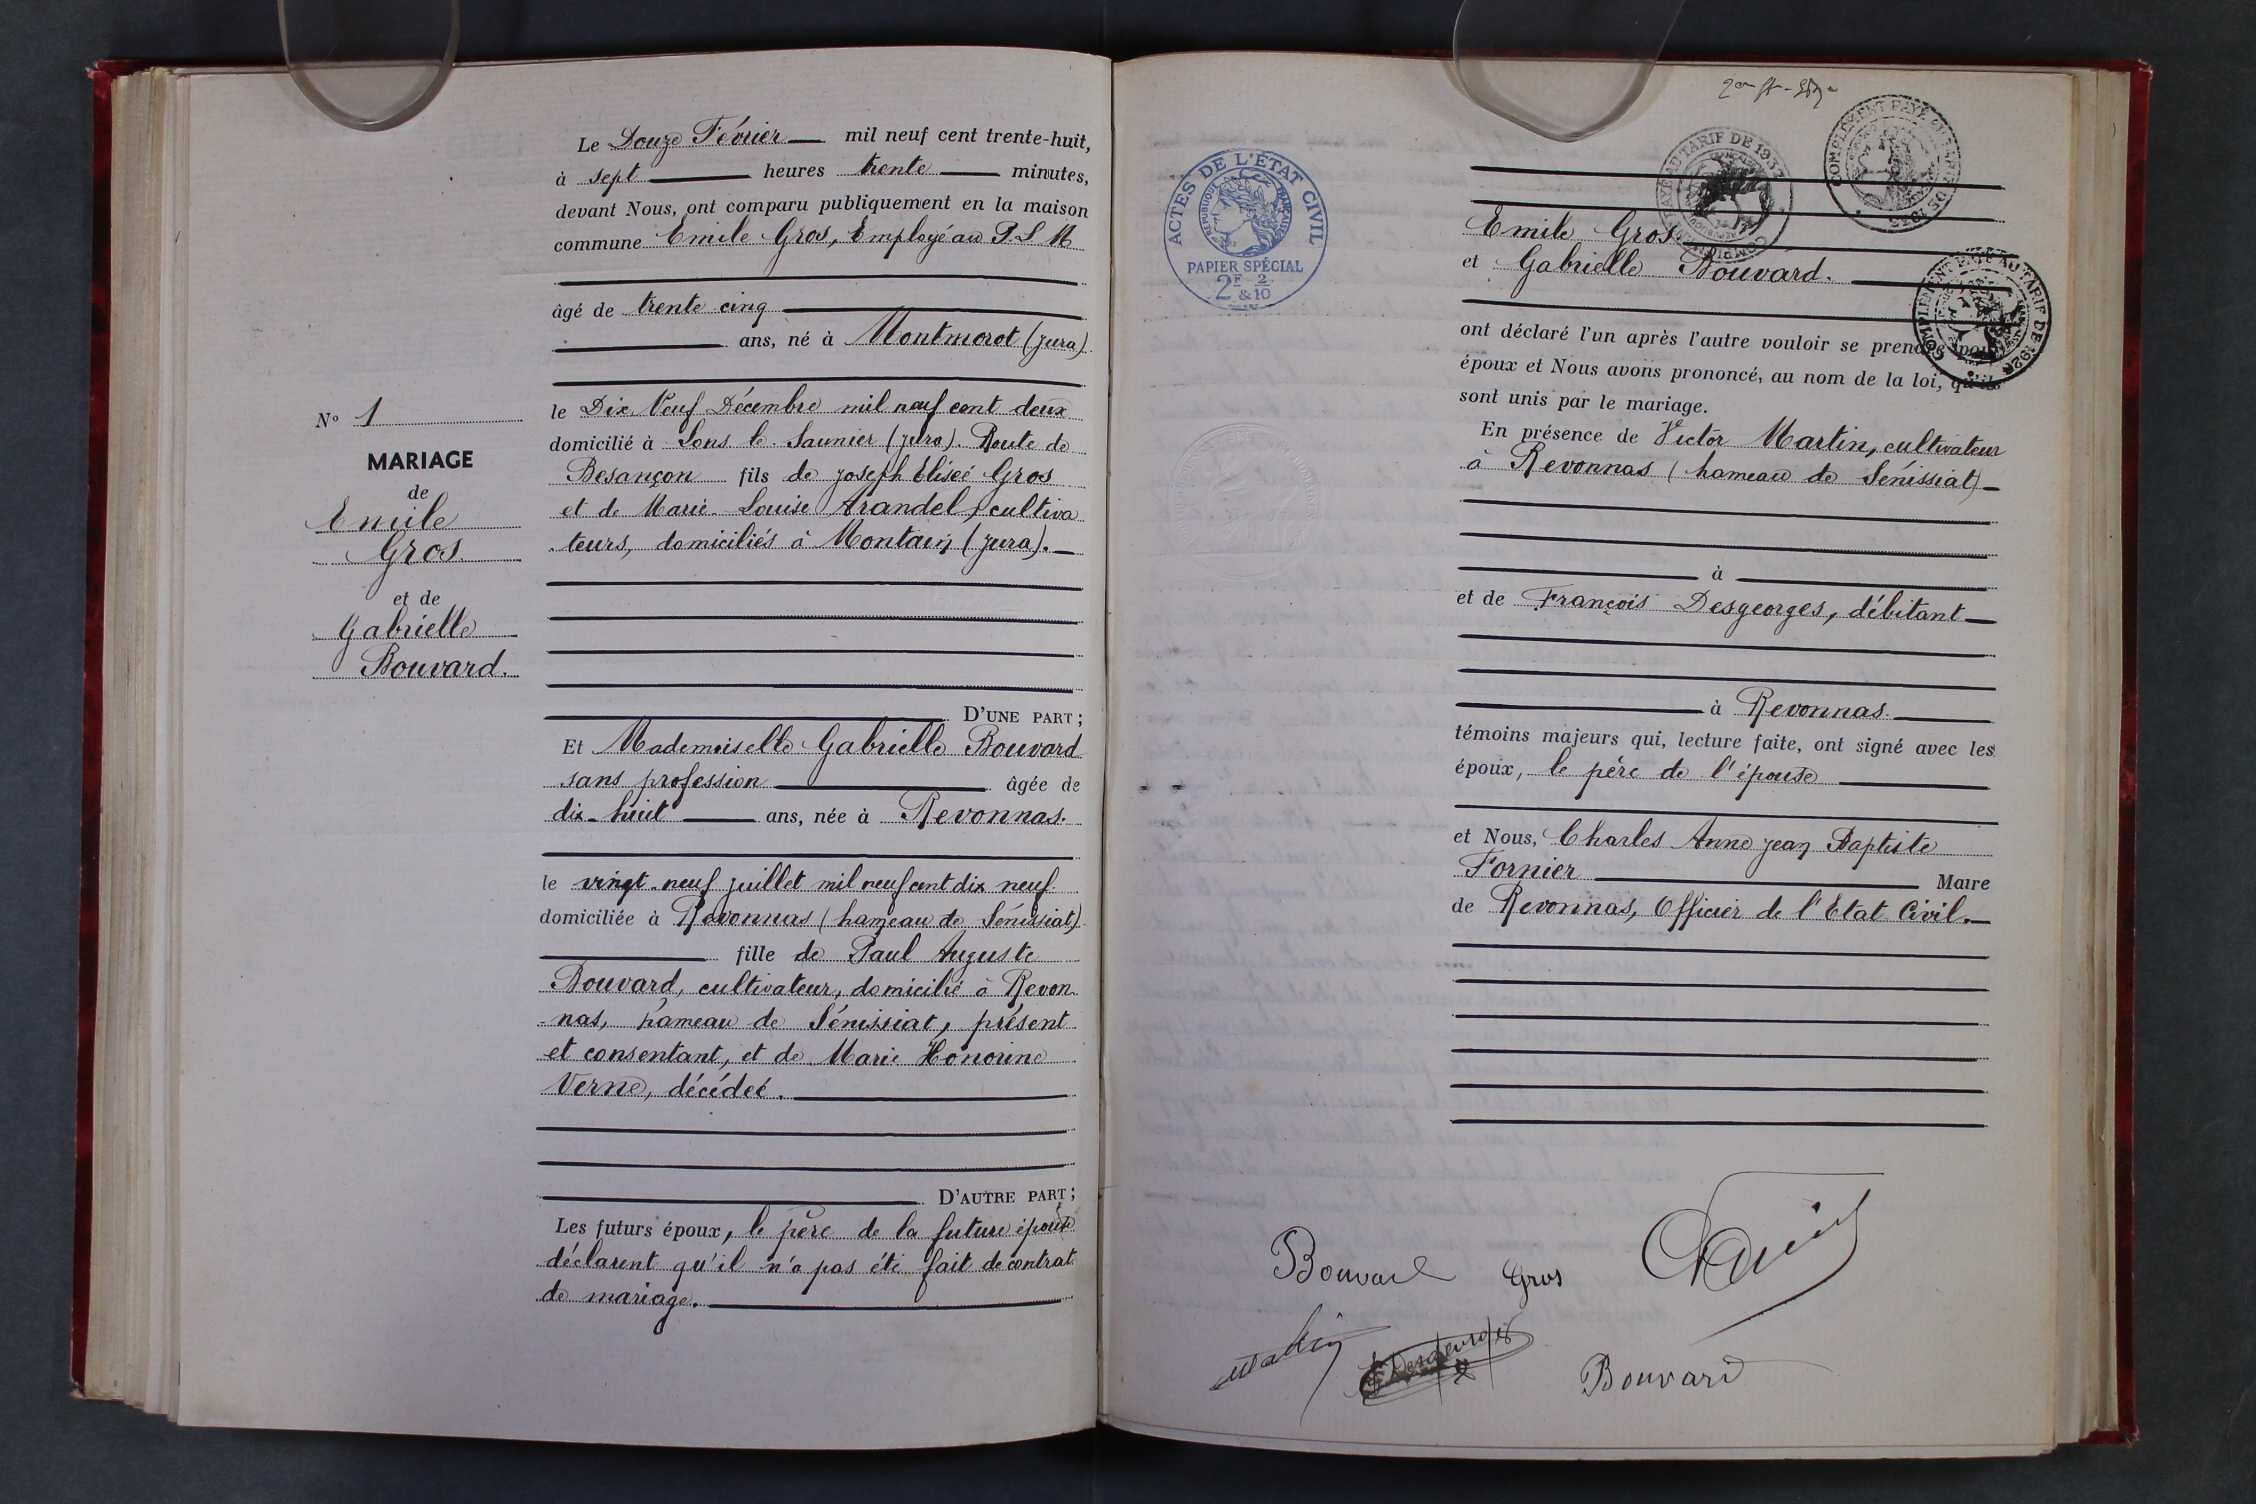 Le Douze Février mil neuf cent trente-huit,
à sept heures trente minutes,
devant Nous, ont comparu publiquement en la maison
commune Emile Gros, Employé au P. L M
âgé de trente cinq
ans, né à Montmorot (Jura)
N° 1
MARIAGE
de
Emile
Gros.
et de
Gabrielle
Bouvard.
le Dix Neuf Décembre mil neuf cent deux
domicilié à Lons le Saunier (Jura). Route de
Besançon fils de Joseph Elisée Gros
et de Marie-Louise Arandel, cultiva
teurs, domiciliés à Montain (Jura).
D'UNE PART;
Et Mademoiselle Gabrielle Bouvard
sans profession âgée de
dix-huit ans, née à Revonnas.
le vingt-neuf juillet mil neuf cent dix neuf.
domiciliée à Revonnas (hameau de Sénissiat)
fille de Paul Auguste
Bouvard, cultivateur, domicilié à Revon
-nas, hameau de Sénissiat, présent
et consentant, et de Marie Honorine
Verne, décédée.
D'AUTRE PART;
Les futurs époux, le père de la future épouse
déclarent qu'il n'a pas été fait de contrat
de mariage.
ACTES DE L'ÉTAT CIVIL
RÉPUBLIQUE FRANÇAISE
PAPIER SPÉCIAL
2F & 2/10
COMPLÉMENT PAYÉ AU TARIF DE 1937
COMPLÉMENT PAYÉ AU TARIF DE
COMPLÉMENT PAYÉ AU TARIF DE 1926
Emile Gros
et Gabrielle Bouvard.
ont déclaré l'un après l'autre vouloir se prendre pour
époux et Nous avons prononcé, au nom de la loi, qu'ils
sont unis par le mariage.
En présence de Victor Martin, cultivateur
à Revonnas (hameau de Sénissiat)
à
et de François Desgeorges, débitant
à Revonnas.
témoins majeurs qui, lecture faite, ont signé avec les
époux, le père de l'épouse
et Nous, Charles Anne Jean Baptiste
Fornier Maire
de Revonnas, Officier de l'Etat Civil.
Bouvard Gros
Martin Desgeorges
Bouvard